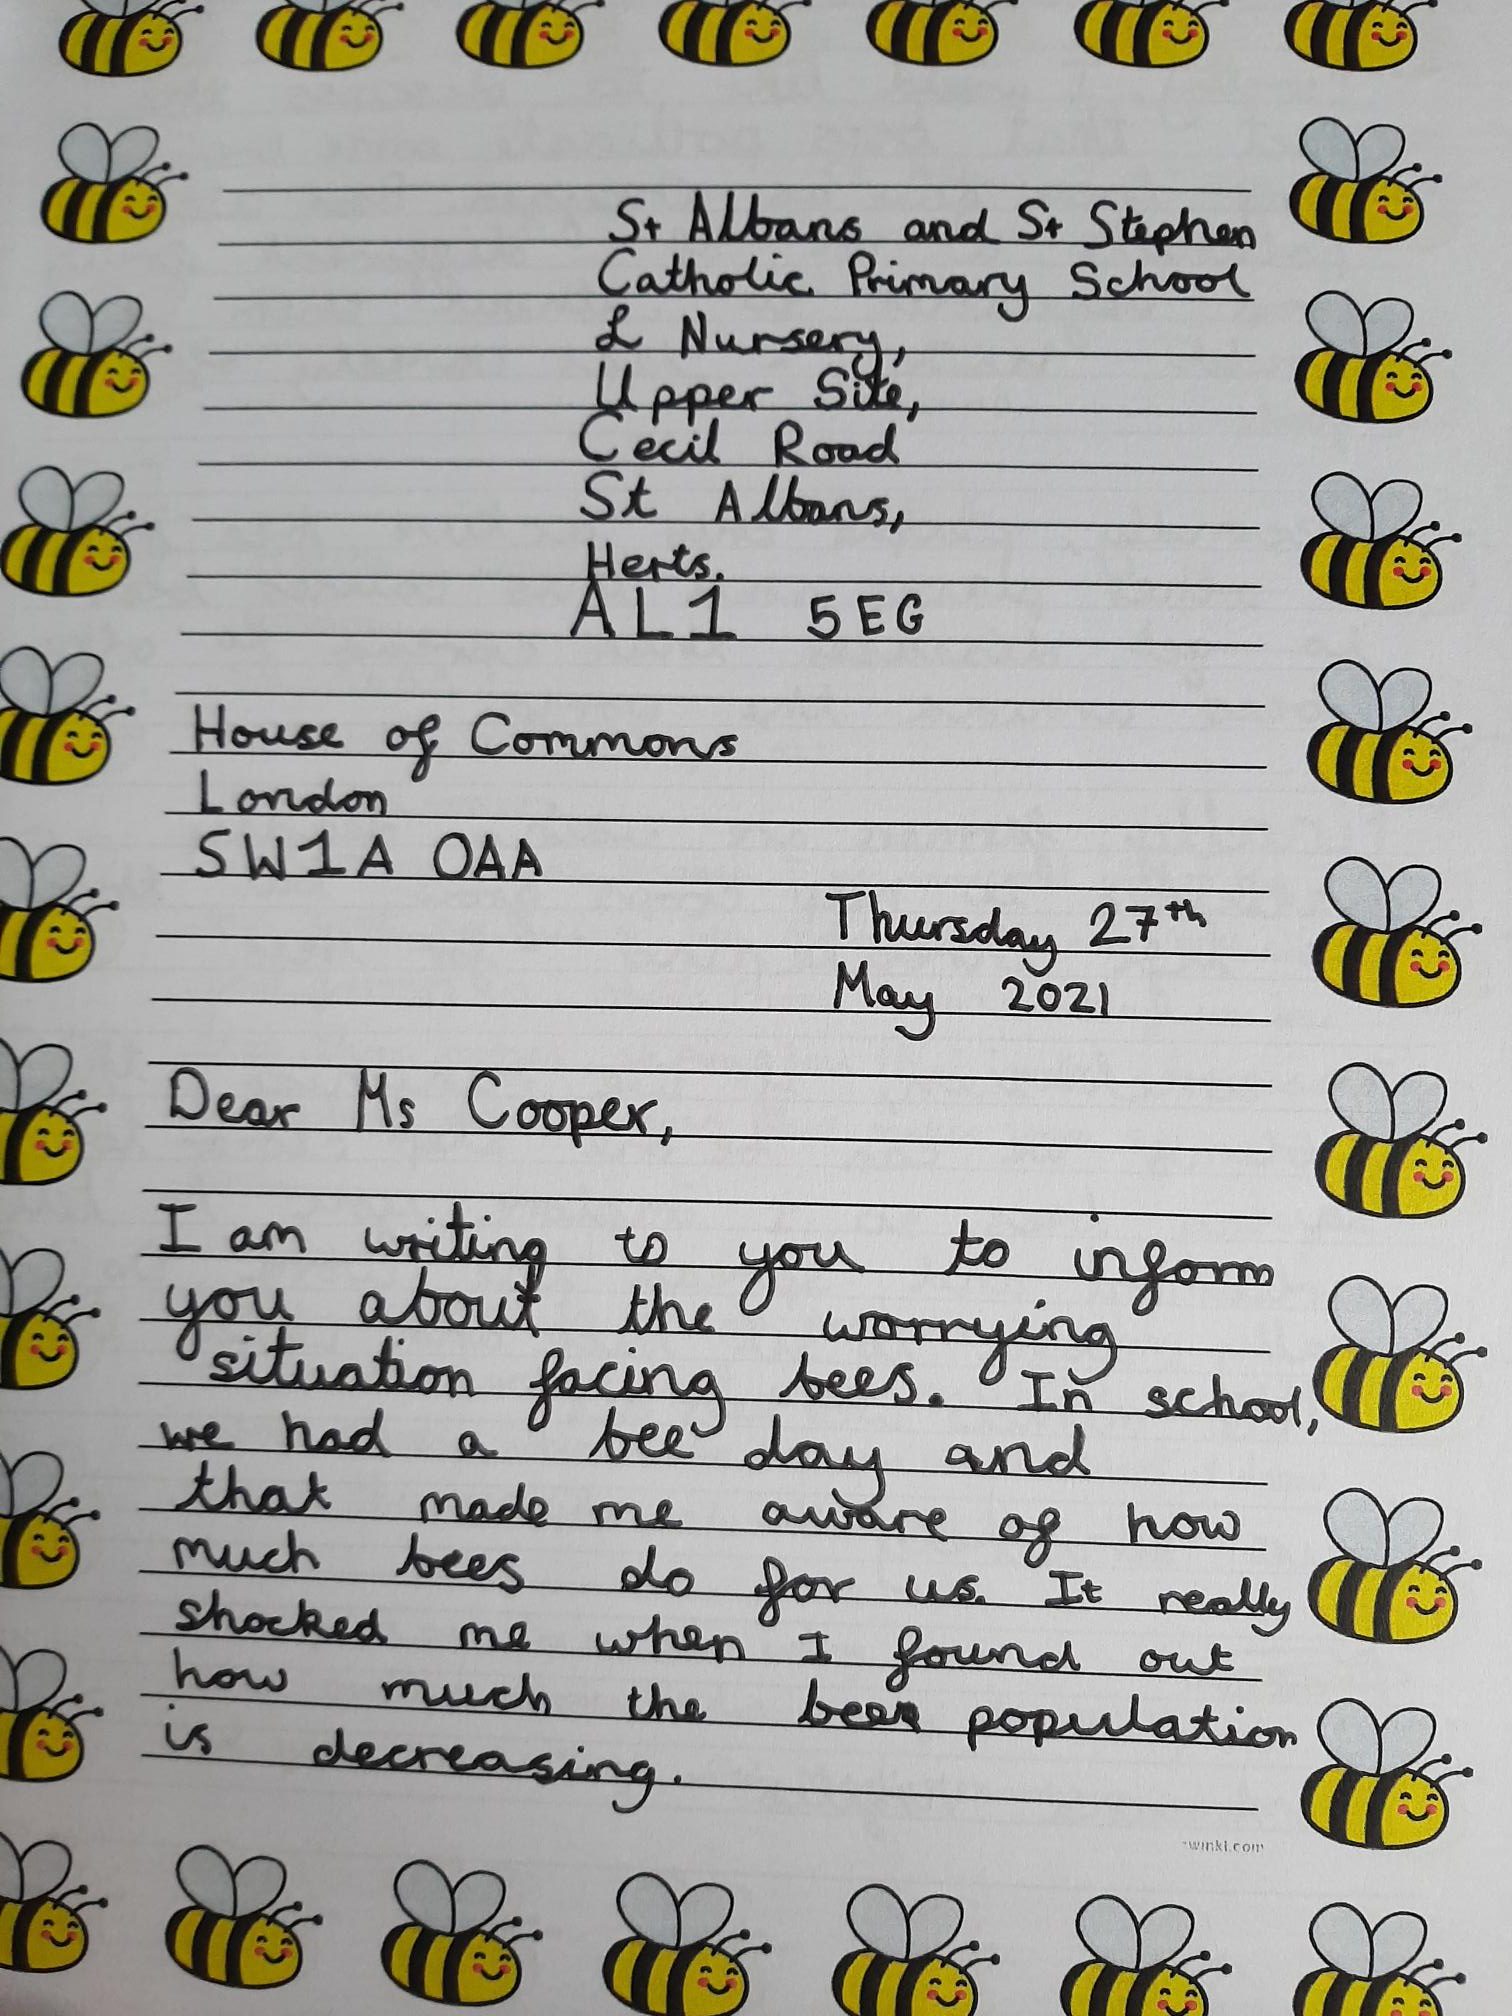 St Albans and St Stephen
Catholic Primary School
& Nursery,
Upper Site,
Cecil Road
St Albans,
Herts.
AL1 5EG
House of Commons
London
SW1A 0AA
Thursday 27th
May 2021
Dear Ms Cooper,
I am writing to you to inform
you about the worrying
situation facing bees. In school,
we had a bee day and
that made me aware of how
much bees do for us. It really
shocked me when I found out
how much the bees population
is decreasing.
winkl.com